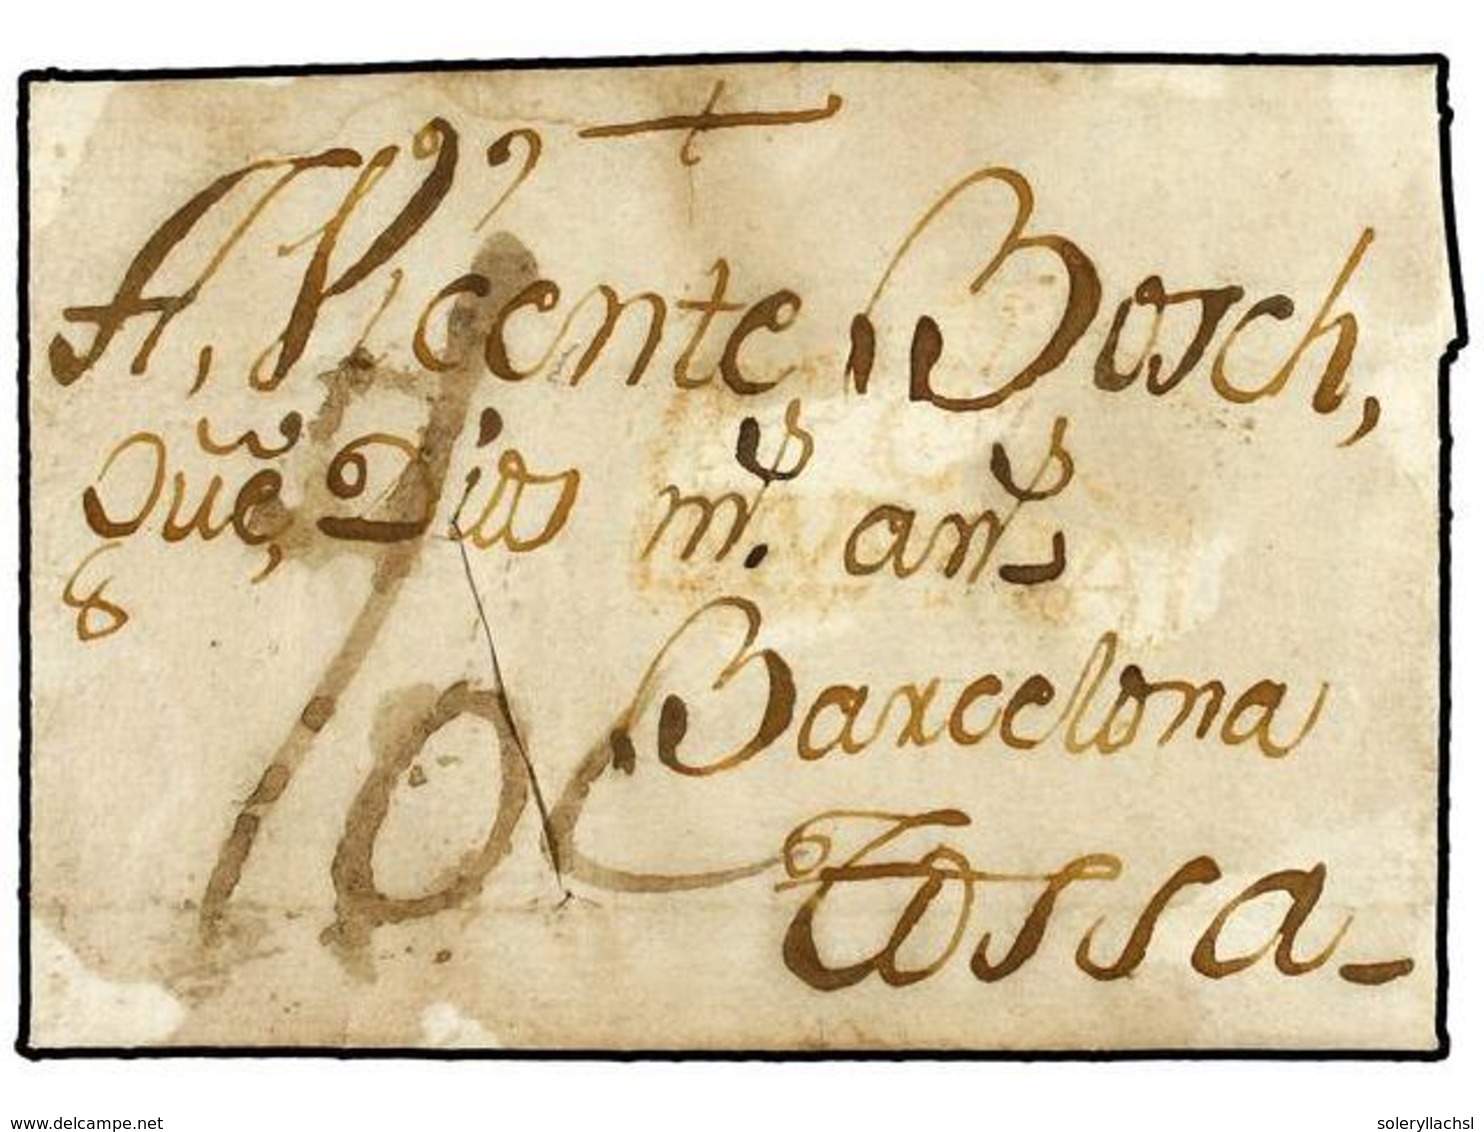 A, Vicente Bosch,
Que, Dios m.s an.s
8
Barcelona
Tossa-
www.delcampe.net
soleryllachsl